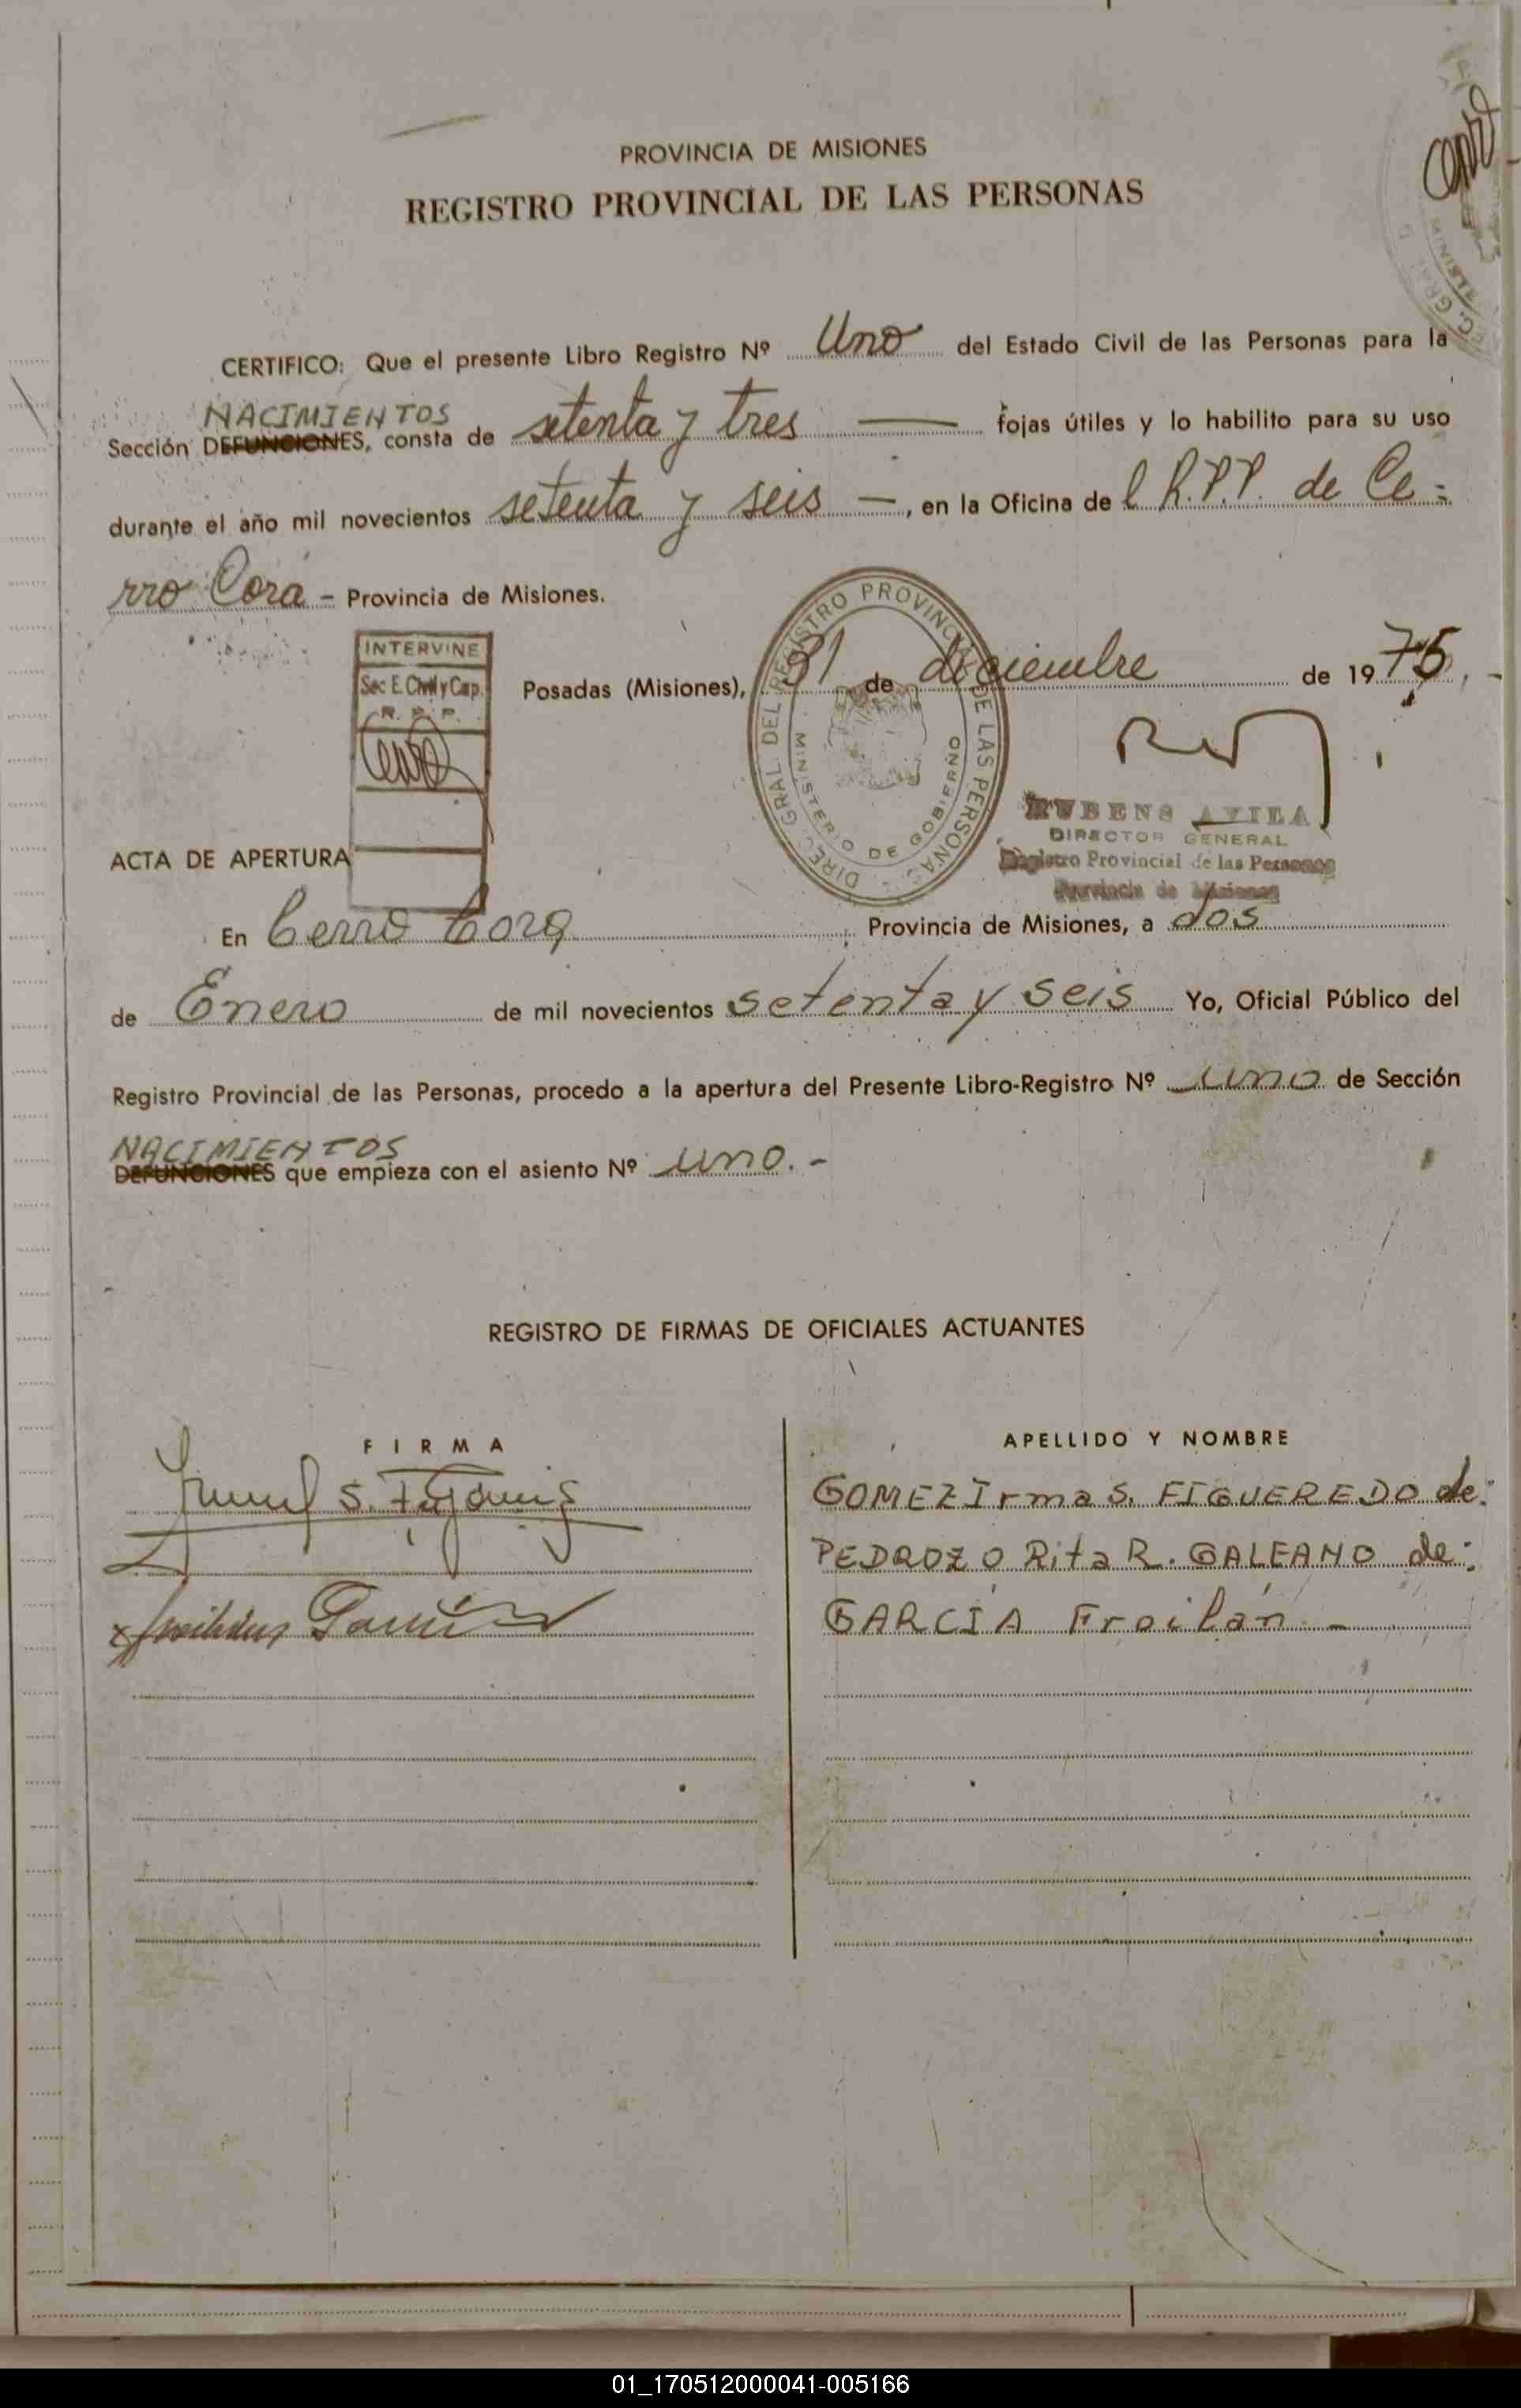 PROVINCIA DE MISIONES
REGISTRO PROVINCIAL DE LAS PERSONAS
CERTIFICO: Que el presente Libro Registro Nº Uno del Estado Civil de las Personas para la
NACIMIENTOS
Sección DEFUNCIONES, consta de setenta y tres — fojas útiles y lo habilito para su uso
durante el año mil novecientos setenta y seis —, en la Oficina de l R.P.P. de Ce-
rro Corá - Provincia de Misiones.
INTERVINE
Sec E. Civil y Cap.
R. P. P.
Posadas (Misiones), 31 de diciembre de 1975.-
DIREC. GRAL. DEL REGISTRO PROVINCIAL DE LAS PERSONAS
MINISTERIO DE GOBIERNO
RUBENS AVILA
DIRECTOR GENERAL
Registro Provincial de las Personas
Provincia de Misiones
ACTA DE APERTURA
En Cerro Cora Provincia de Misiones, a dos
de Enero de mil novecientos setenta y seis Yo, Oficial Público del
Registro Provincial de las Personas, procedo a la apertura del Presente Libro-Registro Nº uno de Sección
NACIMIENTOS
DEFUNCIONES que empieza con el asiento Nº uno.-
REGISTRO DE FIRMAS DE OFICIALES ACTUANTES
FIRMA
APELLIDO Y NOMBRE
GOMEZ Irma S. FIGUEREDO de:
PEDROZO Rita R. GALEANO de:
GARCÍA Froilán -
01_170512000041-005166